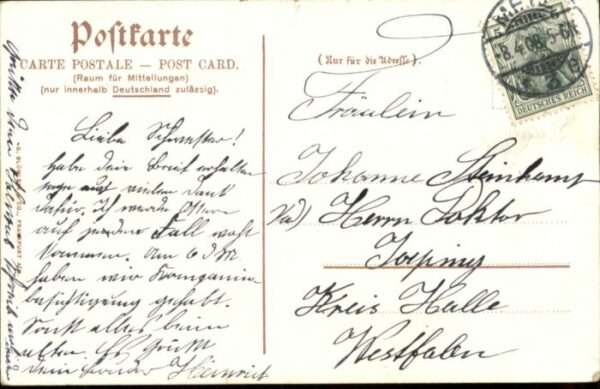 Postkarte
CARTE POSTALE — POST CARD.
(Raum für Mitteilungen)
(nur innerhalb Deutschland zulässig).
(Nur für die Adresse).
METZ
8.4.08. 5-6N
DEUTSCHES REICH
Liebe Schwester!
habe dein Brief erhalten
vielen Dank
dafür. Ich werde Ostern
auf jeden Fall wohl
kommen. Am 6 d M
haben wir Kompanie
besichtigung gehabt.
Sonst alles beim
alten. Es grüßt
dein Bruder Heinrich
Fräulein
Johanne Steinkamp
Herrn Doktor
Kreis Halle
Westfalen